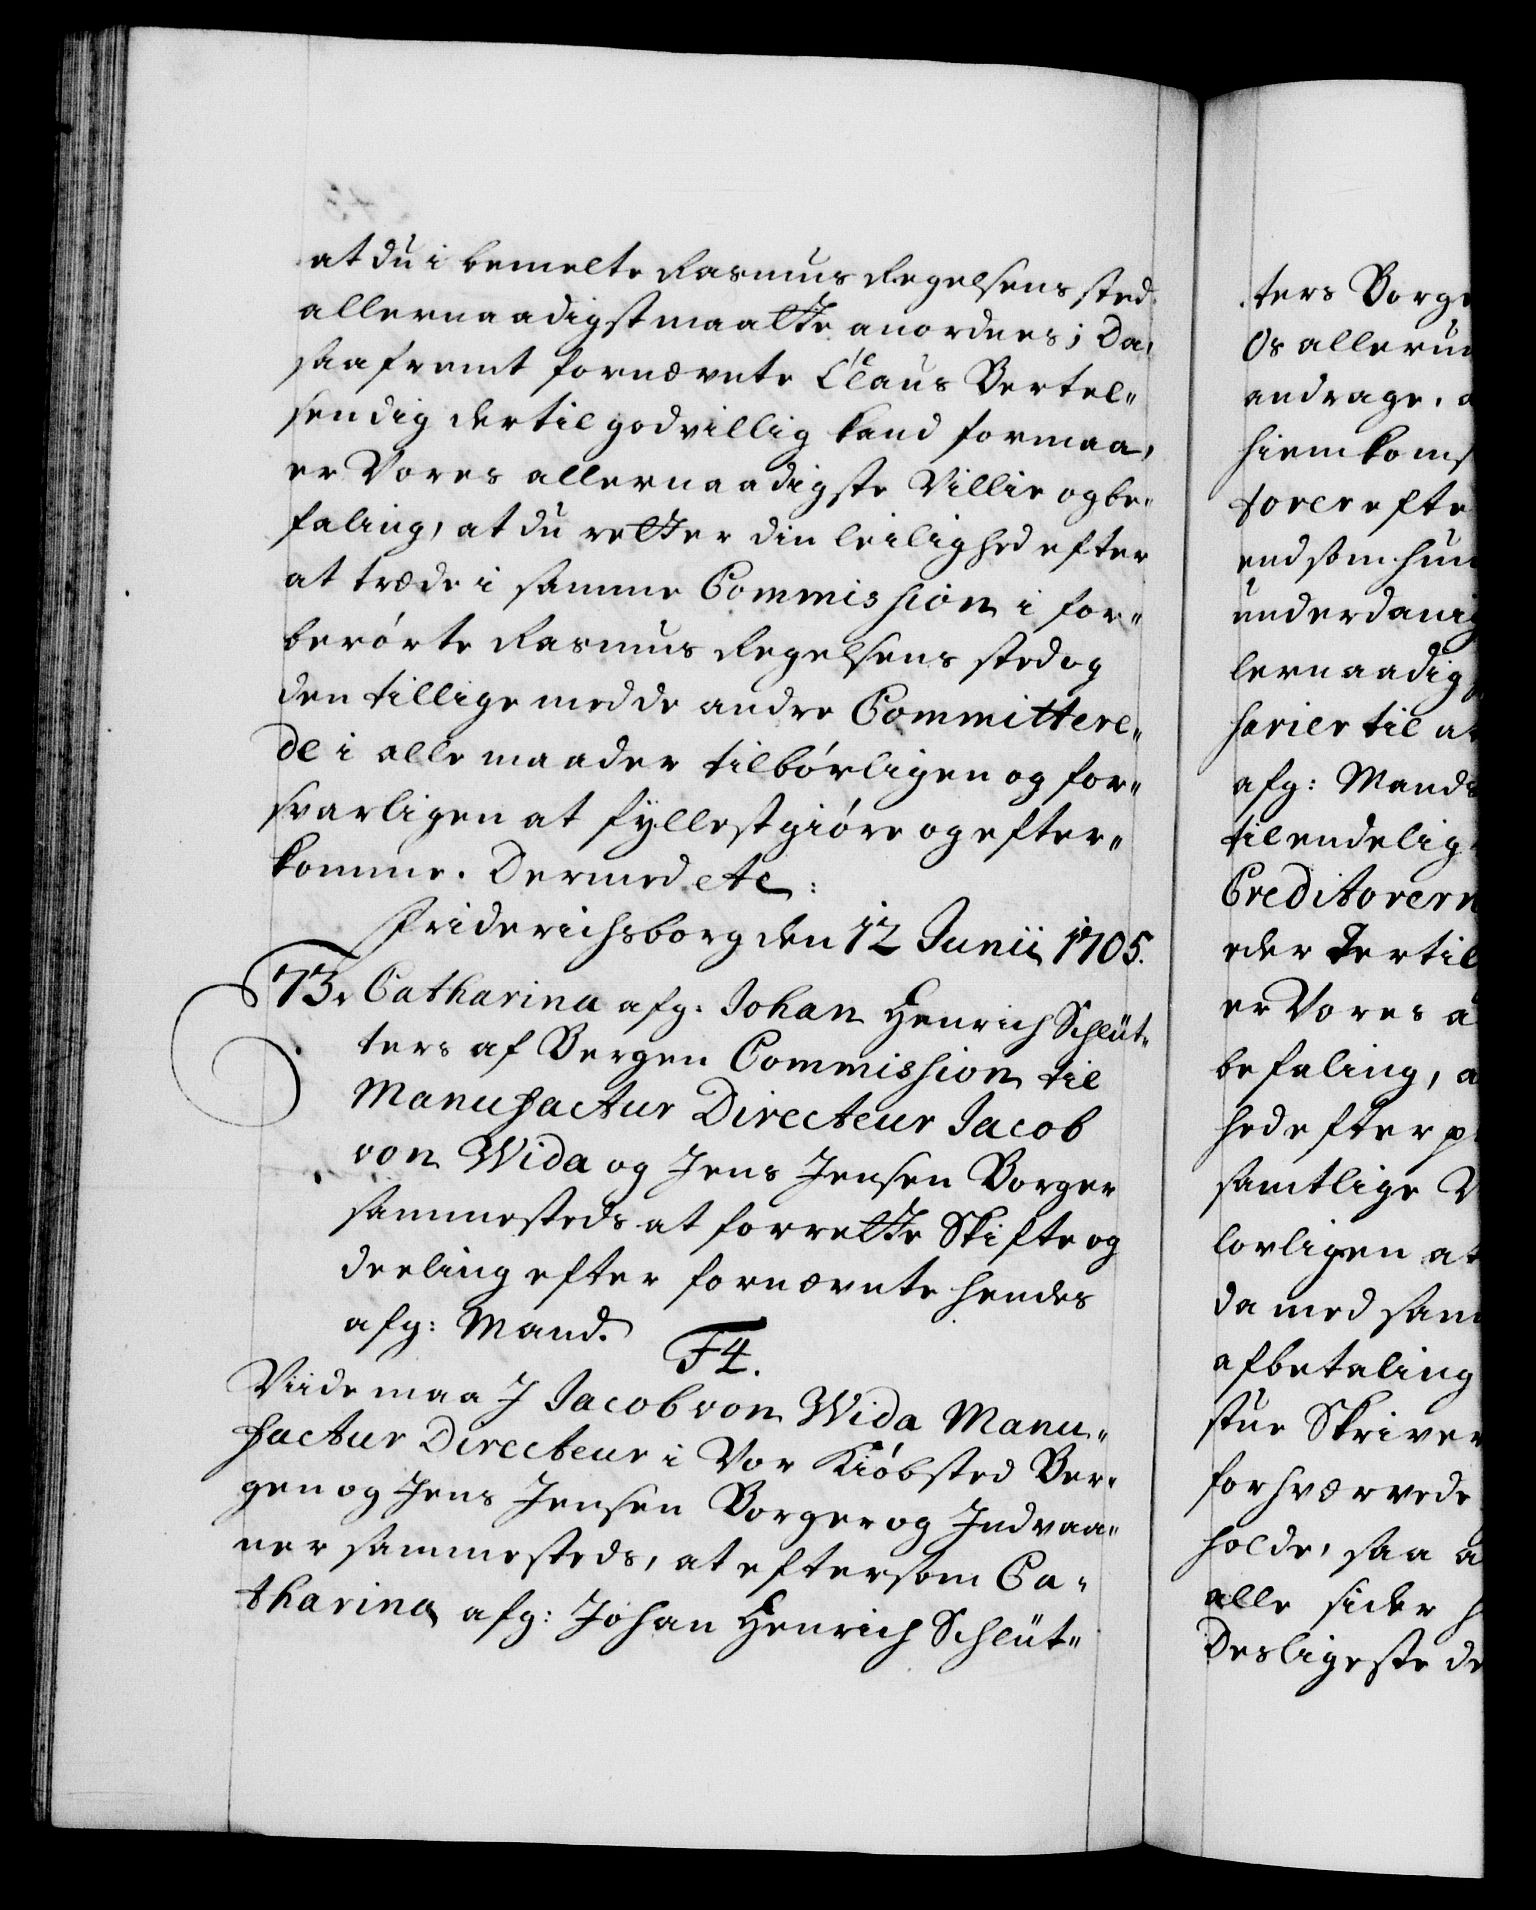 at du i bemelte Rasmus Regelsens sted
allernaadigst maatte anordnes; Da,
saafremt fornævnte Claus Bertel„
sen dig dertil godvillig kand formaa,
er Vores allernaadigste Villie og be„
faling, at du retter din leilighed efter
at træde i samme Commission i for„
berørte Rasmus Regelsens sted og
den tillige med de andre Committere„
de i alle maader tilbørligen og for„
svarligen at fyllestgiøre og efter„
komme. Dermed etc:
Friderichsborg den 12 Junii 1705.
73. Catharina afg: Johan Henrich Schlüt„
ters af Bergen Commission til
Manufactur Directeur Jacob
von Wida og Jens Jensen Borger
sammesteds at forrette Skifte og
deeling efter fornævnte hendes
afg: Mand.
F4.
Viide maa J Jacob von Wida Manu„
factur Directeur i Vor Kiøbsted Ber„
gen og Jens Jensen Borger og Indvaa„
ner sammesteds, at eftersom Ca„
tharina afg: Johan Henrich Schlüt„
ters Borge
Os allerun
andrage, a
hiemkoms
torer efte
end som hun
underdanig
lernaadig
sarier til at
afg: Mands
til endelig
Creditorern
eder dertil
er Vores a
befaling, a
hed efter p
samtlige V
lovligen at
da med sam
afbetaling
stue Skriver
forhværvede
holde, saa a
alle sider h
Desligeste de